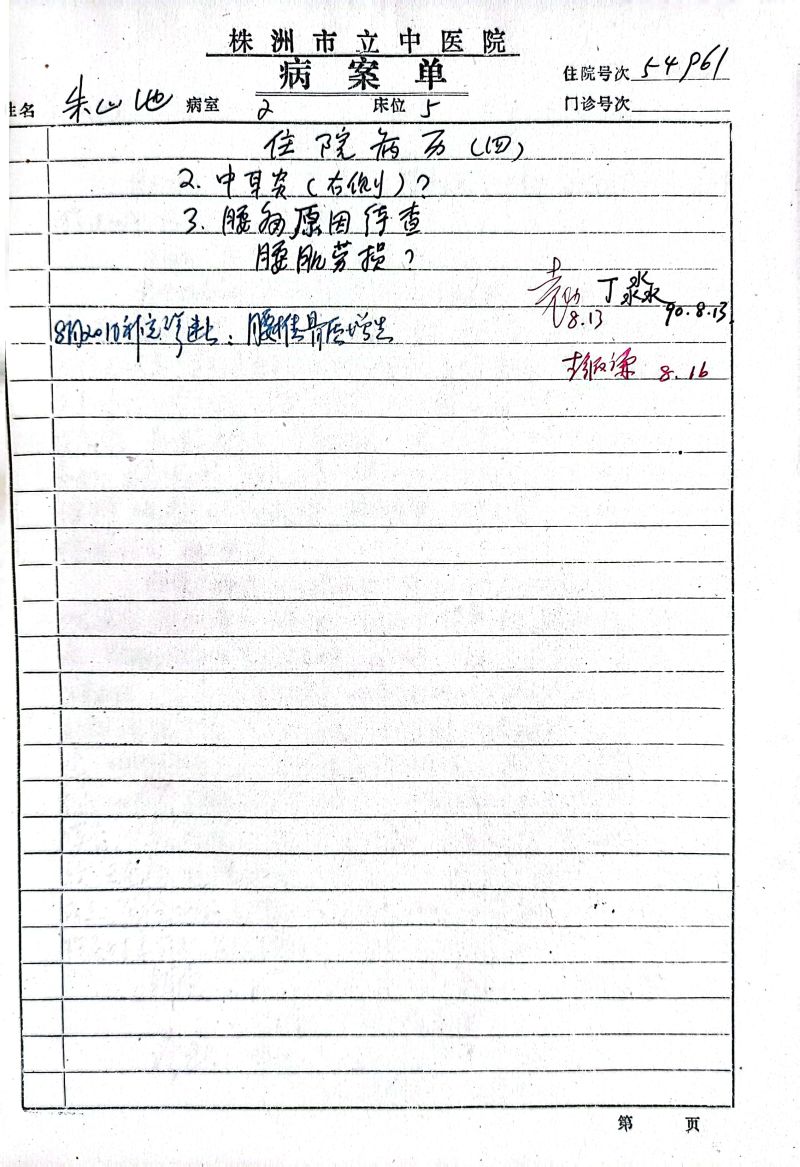 株洲市立中医院
病案单
住院号次 54961
姓名 朱山池 病室 2 床位 5 门诊号次
住院病历(四)
2. 中耳炎(右侧)?
3. 腰痛原因待查
腰肌劳损?
丁淼淼
8.13 90.8.13
8月20日补充诊断:腰椎骨质增生
8.16
第 页